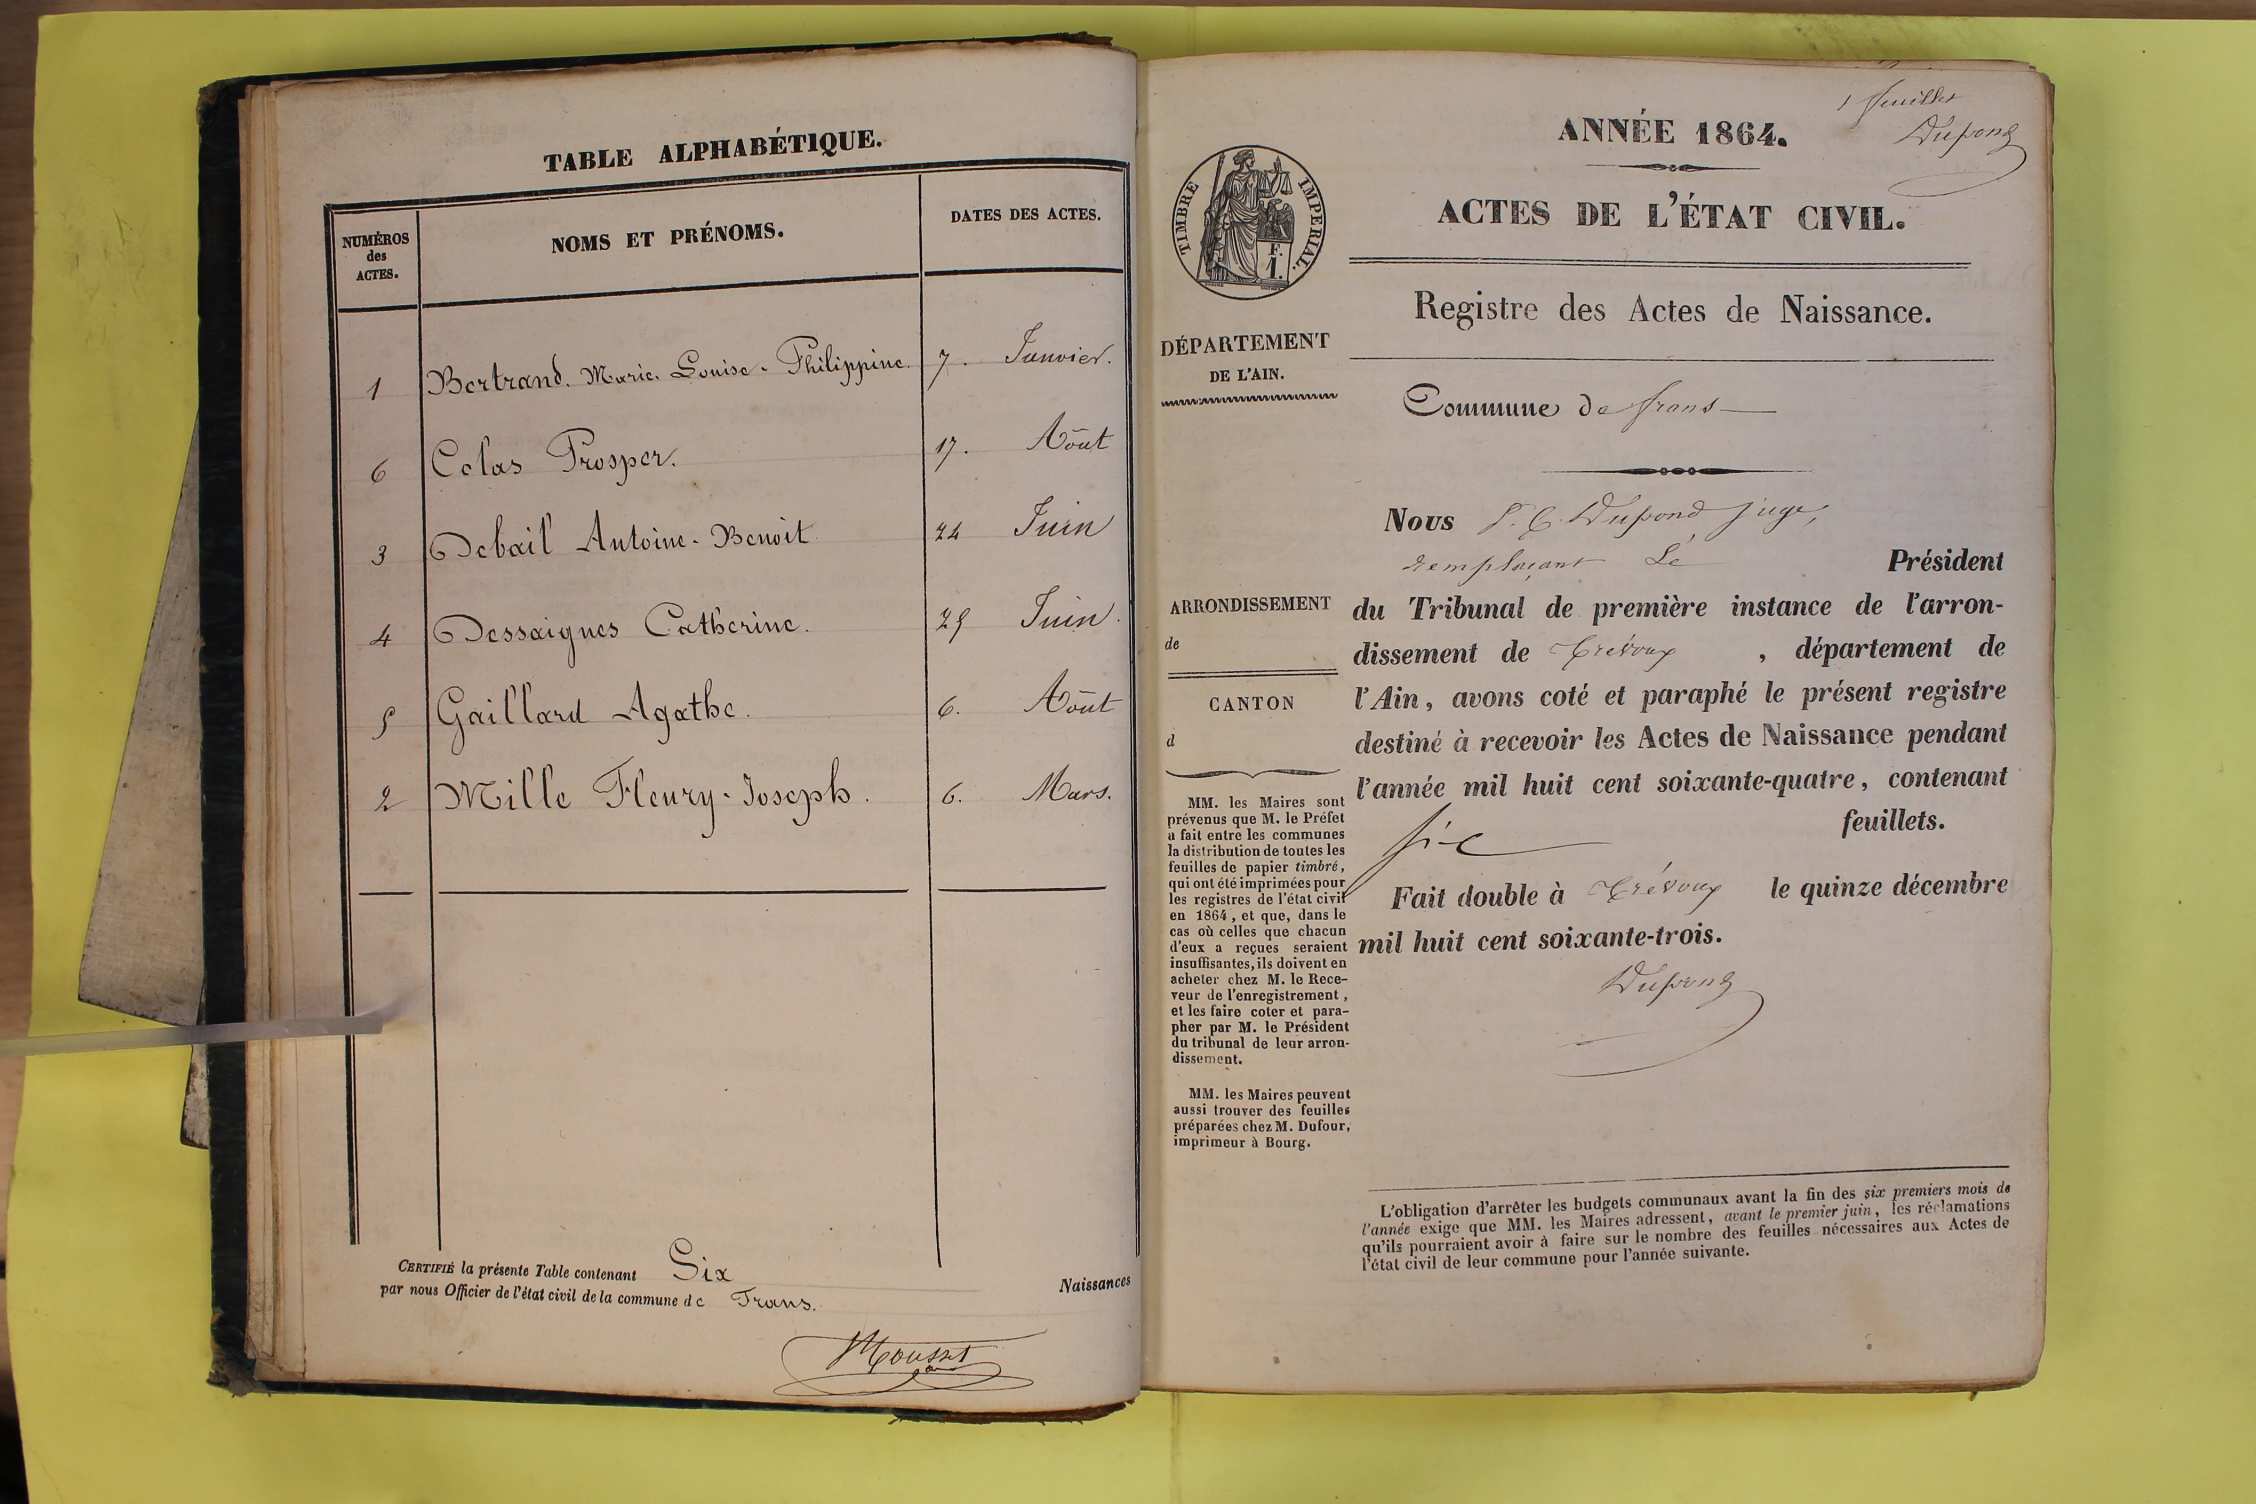 TABLE ALPHABÉTIQUE.
NUMÉROS des ACTES. NOMS ET PRÉNOMS. DATES DES ACTES.
1 Bertrand. Marie. Louise. Philippine. 7. Janvier.
6 Colas Prosper. 17. Août
3 Debail Antoine. Benoit 24 Juin
4 Dessaignes Catherine. 25 Juin.
5 Gaillard Agathe. 6. Août
2 Mille Fleury-Joseph. 6. Mars.
CERTIFIÉ la présente Table contenant Six Naissances
par nous Officier de l'état civil de la commune de Frans.
Mousset
1 feuillet
Dupond
ANNÉE 1864.
ACTES DE L'ÉTAT CIVIL.
TIMBRE IMPERIAL.
F.
1.
Registre des Actes de Naissance.
DÉPARTEMENT
DE L'AIN.
Commune de frans
Nous Dupond juge,
remplaçant Le Président
du Tribunal de première instance de l'arron-
dissement de Trévoux, département de
l'Ain, avons coté et paraphé le présent registre
destiné à recevoir les Actes de Naissance pendant
l'année mil huit cent soixante-quatre, contenant
six feuillets.
Fait double à Trévoux le quinze décembre
mil huit cent soixante-trois.
Dupond
ARRONDISSEMENT
de
CANTON
d
MM. les Maires sont
prévenus que M. le Préfet
a fait entre les communes
la distribution de toutes les
feuilles de papier timbré,
qui ont été imprimées pour
les registres de l'état civil
en 1864, et que, dans le
cas où celles que chacun
d'eux a reçues seraient
insuffisantes, ils doivent en
acheter chez M. le Rece-
veur de l'enregistrement,
et les faire coter et para-
pher par M. le Président
du tribunal de leur arron-
dissement.
MM. les Maires peuvent
aussi trouver des feuilles
préparées chez M. Dufour,
imprimeur à Bourg.
L'obligation d'arrêter les budgets communaux avant la fin des six premiers mois de
l'année exige que MM. les Maires adressent, avant le premier juin, les réclamations
qu'ils pourraient avoir à faire sur le nombre des feuilles nécessaires aux Actes de
l'état civil de leur commune pour l'année suivante.